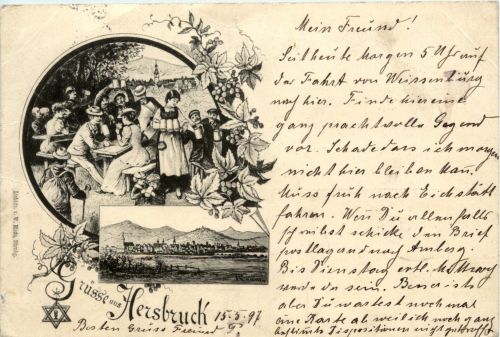 Mein Freund!
Seit heute Morgen 5 Uhr auf
der Fahrt von Weissenburg
nach hier. Finde hier eine
ganz prachtvolle Gegend
vor. Schade dass ich morgen
nicht hier bleiben kann.
Muss früh nach Eichstätt
fahren. Wenn Du allenfalls
schreibst schicke den Brief
postlagernd nach Amberg.
Bis Dienstag
werde da sein.
aber Du wartest noch mal
eine Karte ab weil ich noch ganz
bestimmte Dispositionen nicht getroffen
Grüsse aus Hersbruck 15.5.97
Besten Gruss Freund